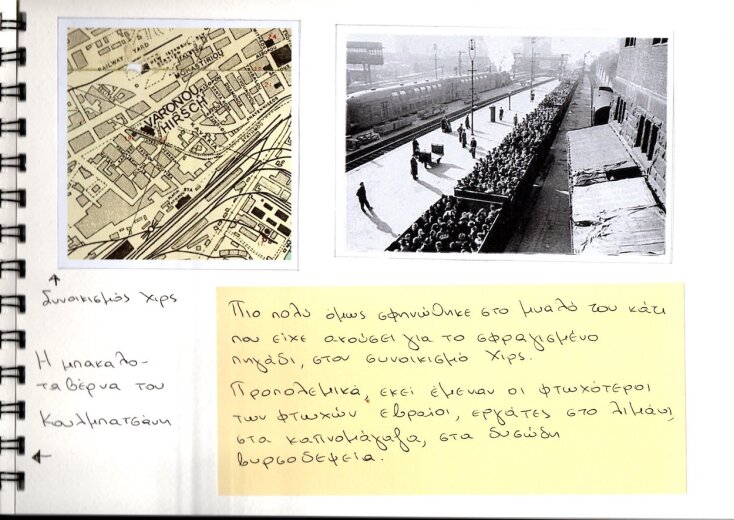 RAILWAY YARD
MONASTIRIOU
VARONOU
HIRSCH
STA
Συνοικισμός Χιρς
Η μπακαλο-
ταβέρνα του
Κουλμπατσάνη
Πιο πολύ όμως σφηνώθηκε στο μυαλό του κάτι
που είχε ακούσει για το σφραγισμένο
πηγάδι, στον συνοικισμό Χιρς.
Προπολεμικά, εκεί έμεναν οι φτωχότεροι
των φτωχών εβραίοι, εργάτες στο λιμάνι,
στα καπνομάγαζα, στα δυσώδη
βυρσοδεψεία.